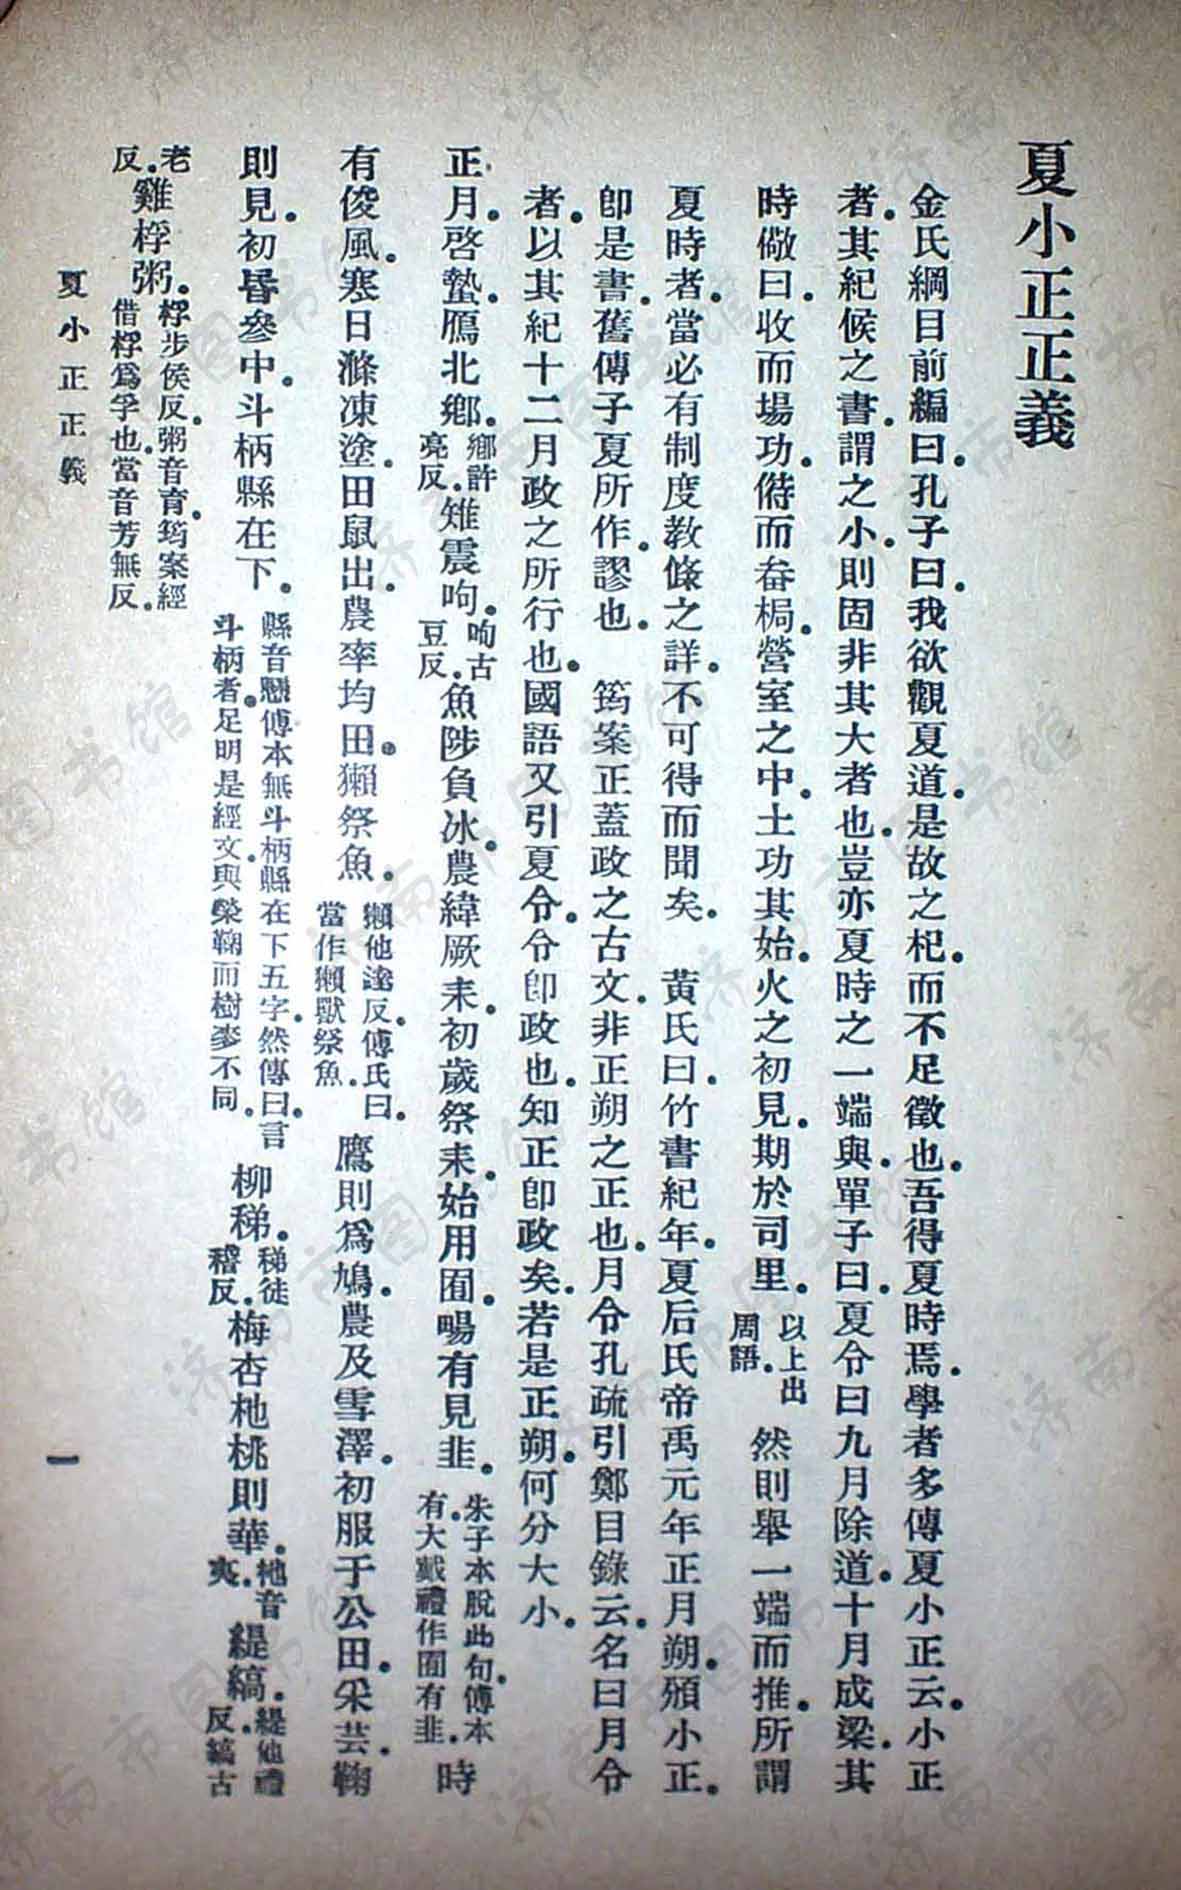 夏小正正義
金氏綱目前編曰。孔子曰。我欲觀夏道。是故之杞。而不足徵也。吾得夏時焉。學者多傳夏小正云。小正
者。其紀候之書。謂之小。則固非其大者也。豈亦夏時之一端與。單子曰。夏令曰九月除道。十月成梁。其
時儆曰。收而場功。偫而畚梮。營室之中。土功其始。火之初見。期於司里。以上出周語。然則舉一端而推。所謂
夏時者。當必有制度教條之詳。不可得而聞矣。　黃氏曰。竹書紀年。夏后氏帝禹元年正月朔。頒小正。
卽是書。舊傳子夏所作。謬也。　筠案正蓋政之古文。非正朔之正也。月令孔疏引鄭目錄云。名曰月令
者。以其紀十二月政之所行也。國語又引夏令。令卽政也。知正卽政矣。若是正朔。何分大小。
正月。啓蟄。鴈北鄉。鄉許亮反。雉震呴。呴古豆反。魚陟負冰。農緯厥耒。初歲祭耒。始用囿。暢有見韭。朱子本脫此句。傅本有。大戴禮作囿有韭。時
有俊風。寒日滌凍塗。田鼠出。農率均田。獺祭魚。獺他達反。傅氏曰。當作獺獸祭魚。鷹則爲鳩。農及雪澤。初服于公田。采芸。鞠
則見。初昏參中。斗柄縣在下。縣音懸。傅本無斗柄縣在下五字。然傳曰。言斗柄者。足明是經文。與榮鞠而樹麥不同。柳稊。稊徒稽反。梅杏杝桃則華。杝音夷。緹縞。緹他禮反。縞古
老反。雞桴粥。桴步侯反。粥音育。筠案經借桴爲孚也。當音芳無反。
夏小正正義
一